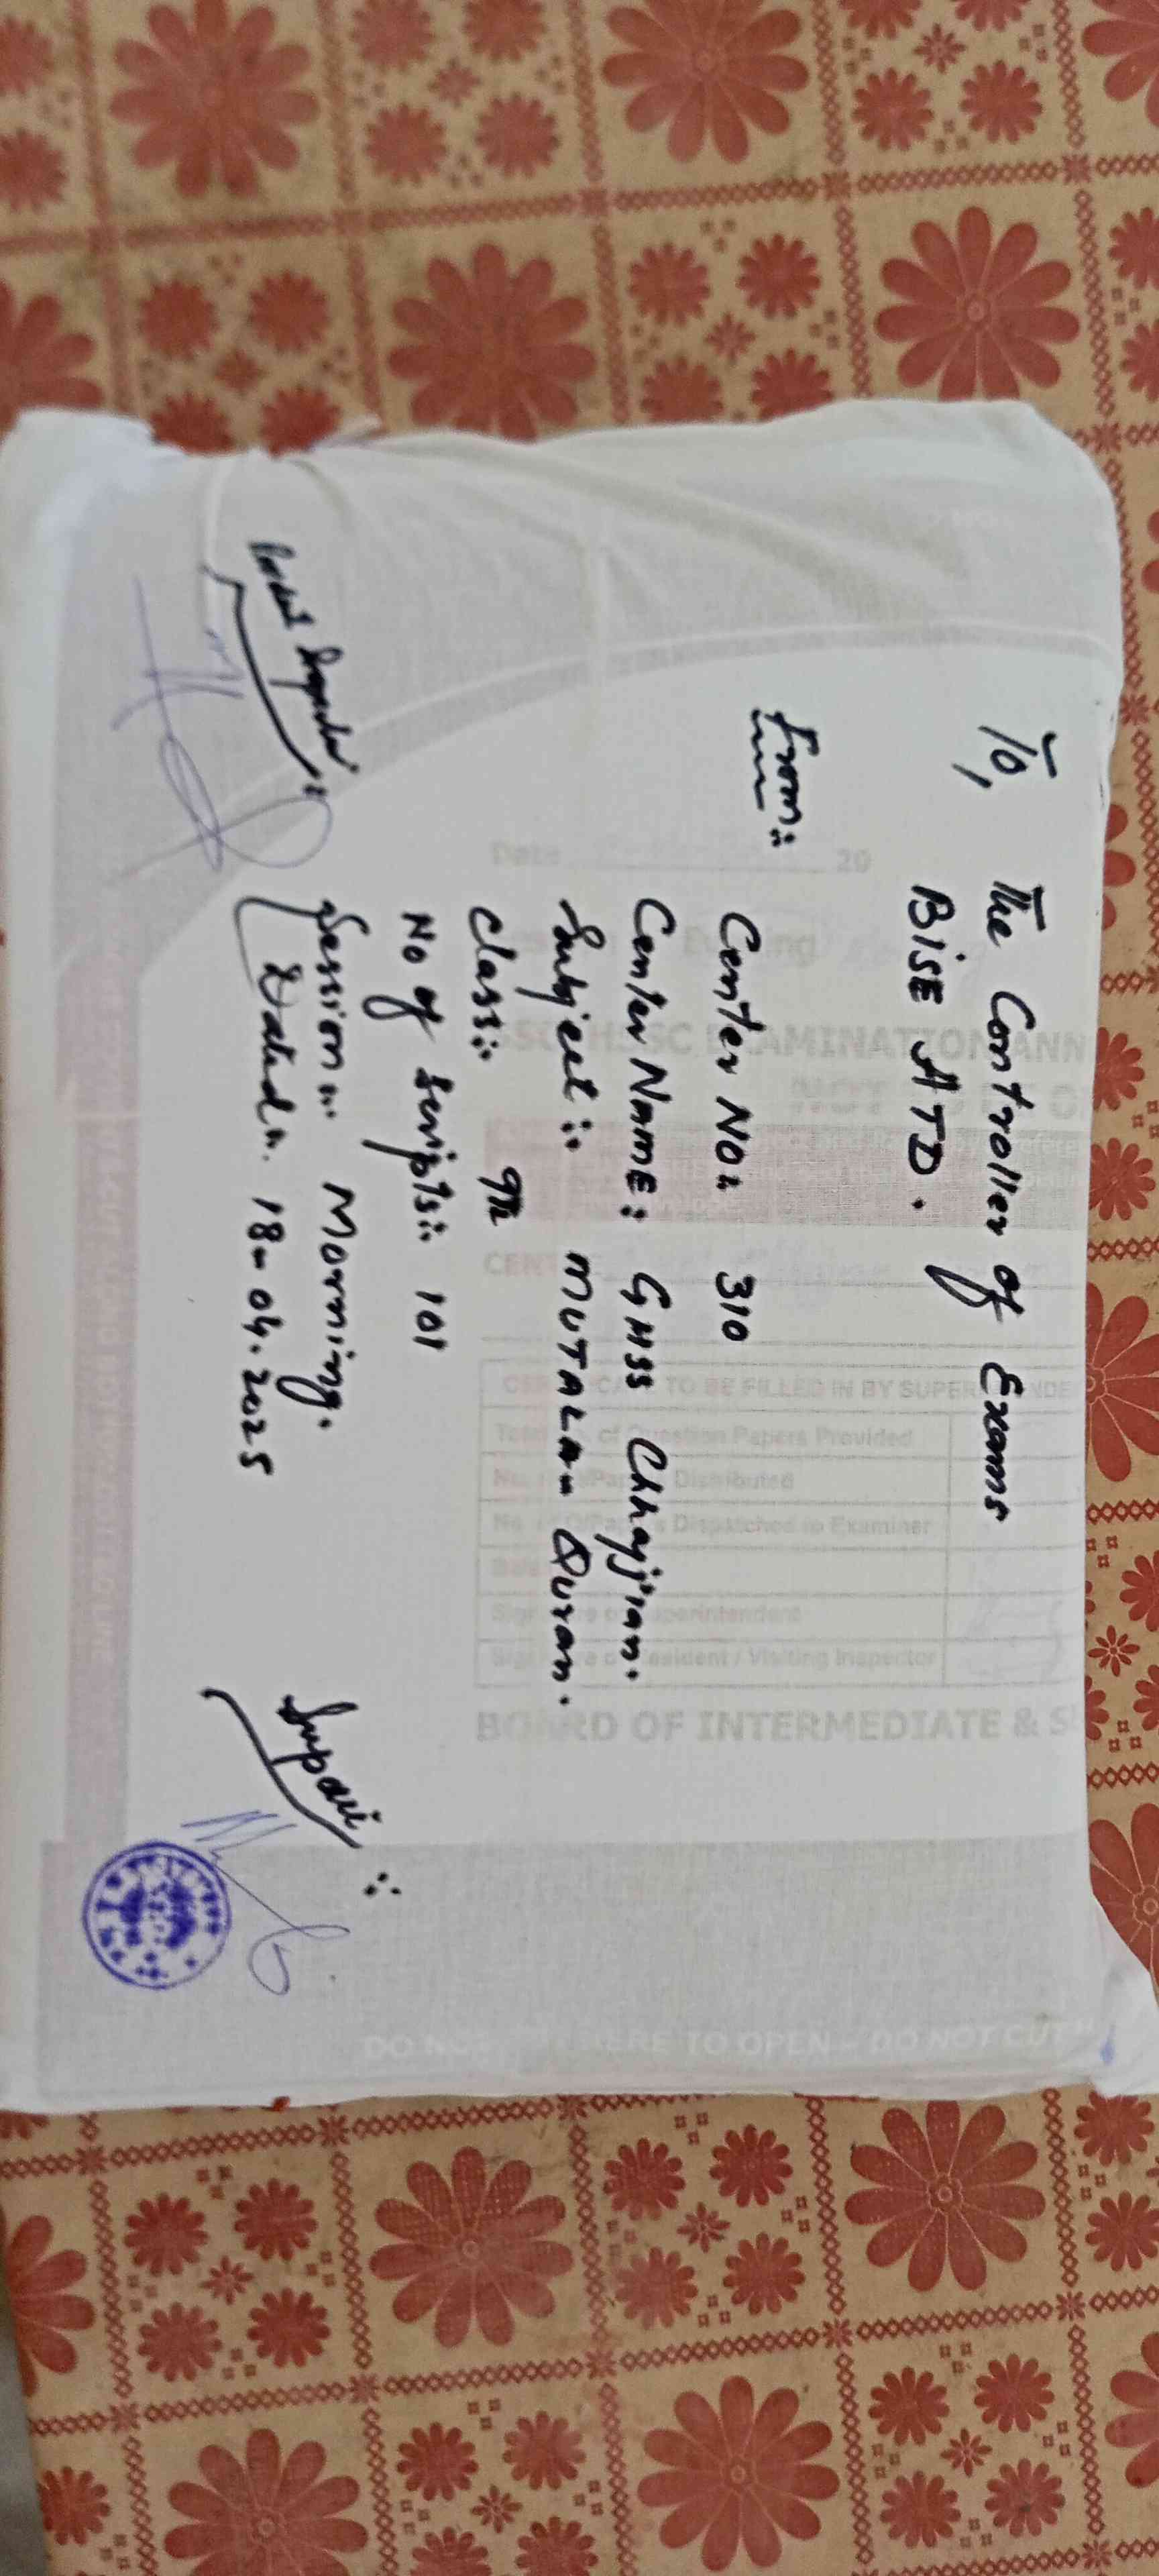 To,
The Controller of Exams
BISE ATD.
From:
Center No: 310
Center Name: GHSS Chhajjian.
Subject: MUTALA-- Quran.
Class: 9th
No of Scripts: 101
Session: Morning.
Dated: 18-04-2025
Inspector
Supdt:
Date 20
Evening
SSC/HSSC EXAMINATION ANN
NOT TO BE O
CENTRE
CERTIFICATE TO BE FILLED IN BY SUPERINTENDE
Total No. of Question Papers Provided
No. of Q/Papers Distributed
No. of Q/Papers Dispatched to Examiner
Signature of Superintendent
Signature of Resident / Visiting Inspector
BOARD OF INTERMEDIATE & S
DO NOT CUT HERE TO OPEN - DO NOT CUT H